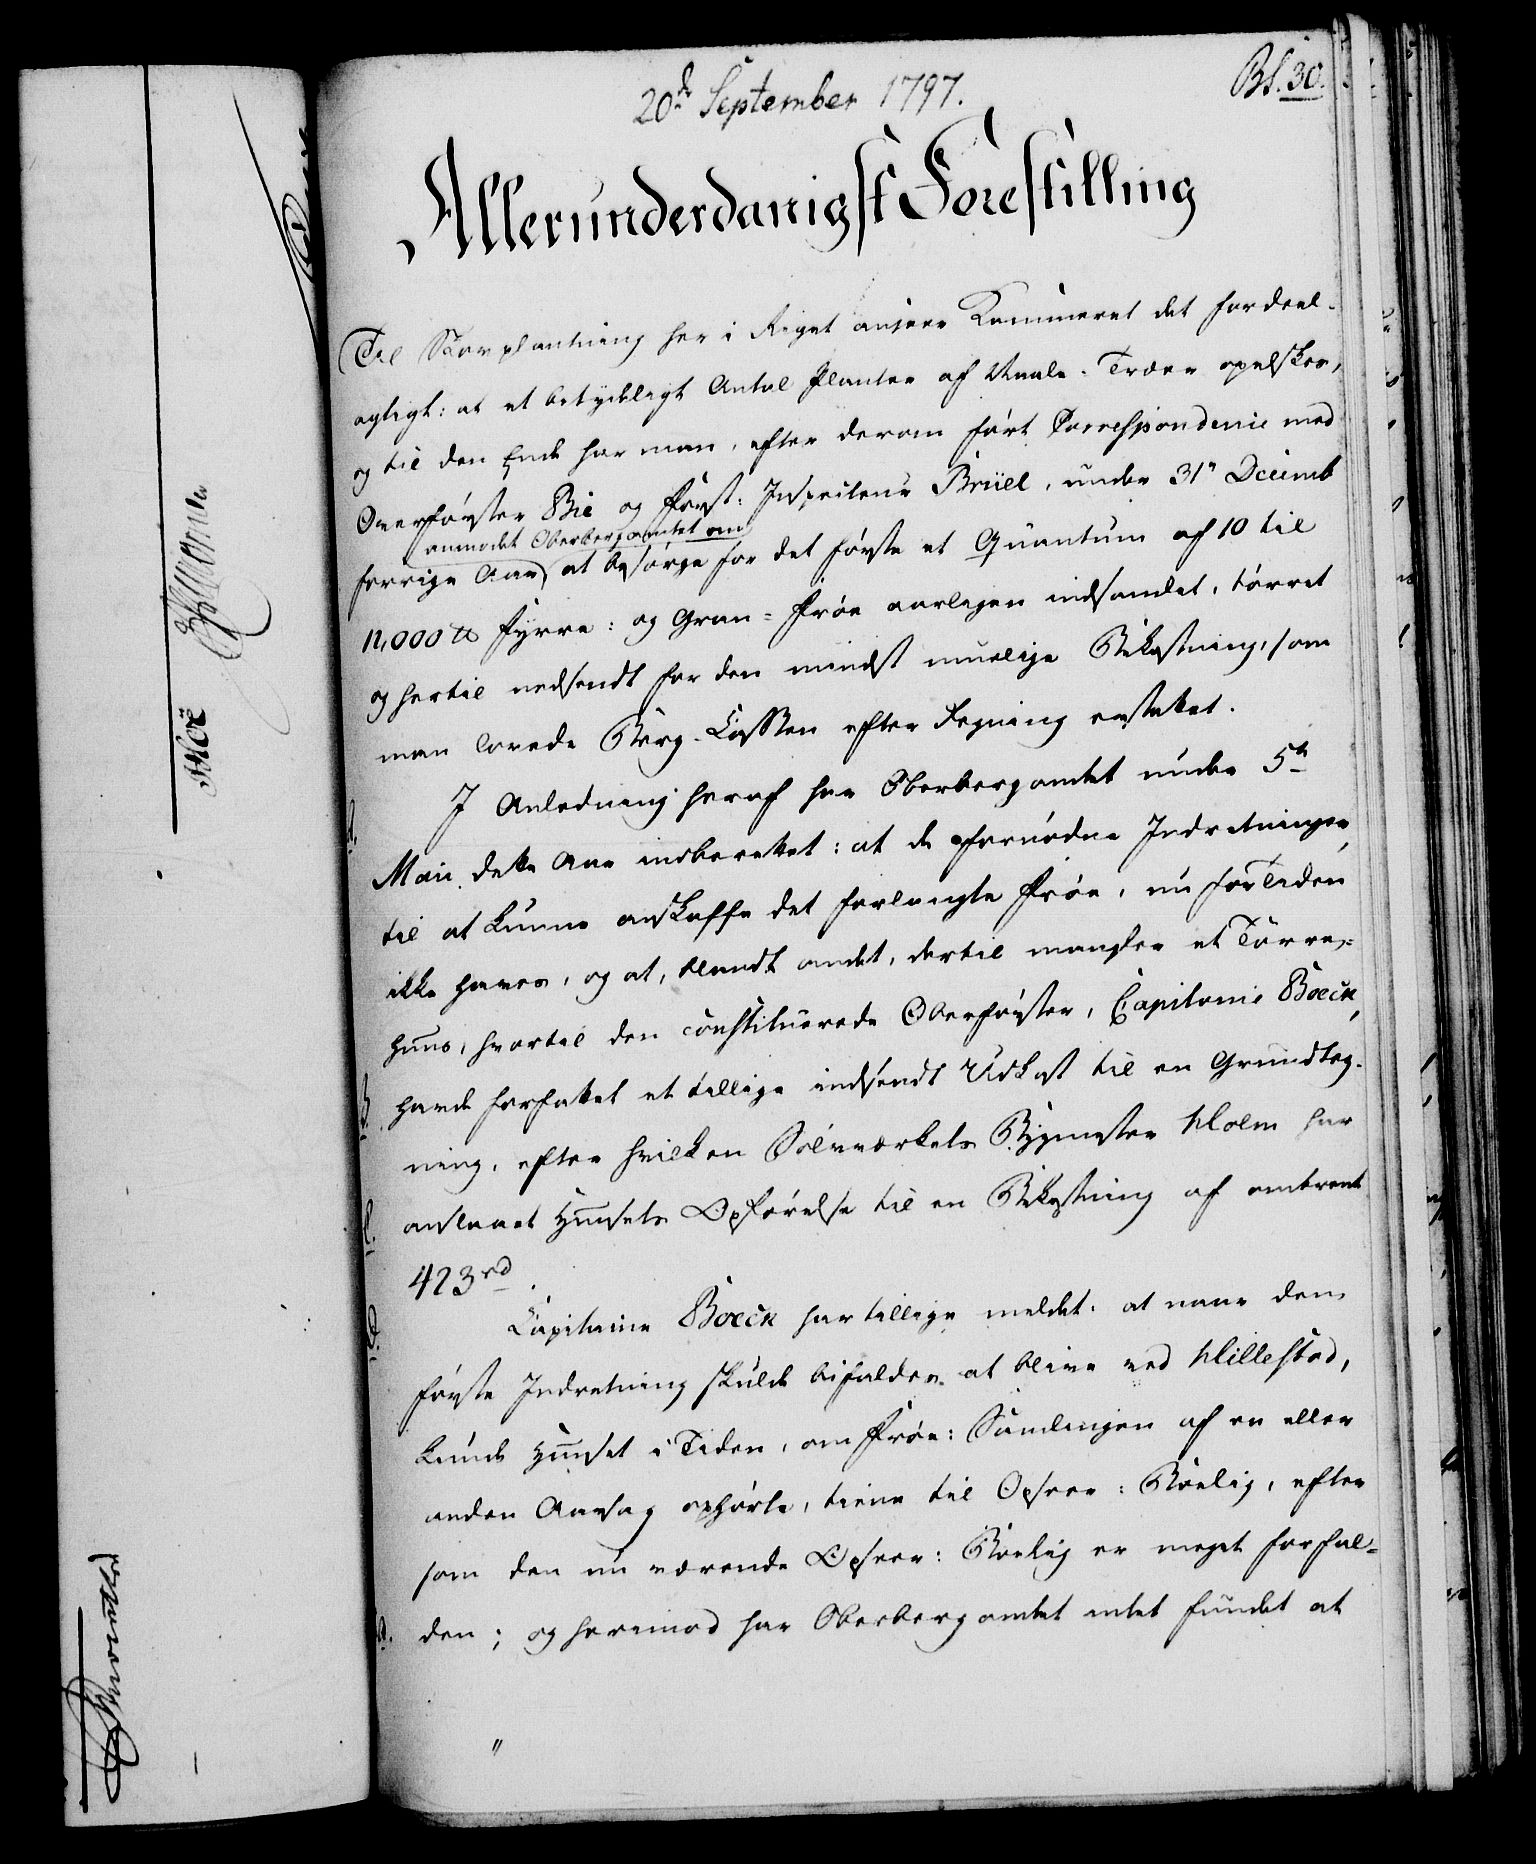 20de September 1797.
Bl. 30.
Allerunderdanigst Forestilling
Til Skov plantning her i Riget ansaae Kammeret det fordeel-
agtigt: at et betydeligt Antal Planter af Naale-Træer opelskes,
og til den Ende har man, efter derom ført Correspondence med
Overførster Bie og Forst: Inspecteur Brüel, under 31te Decemb
anmodet Oberbergamtet om
forrige Aar at besørge for det første et Quantum af 10 til
12,000 ℔ Fyrre: og Gran-Frøe aarligen indsamlet, tørret
og hertil nedsendt for den mindst muelige Bekostning, som
man lovede Berg-Cassen efter Regning erstattet.
I Anledning heraf har Oberbergamtet under 5te
Maii dette Aar indberettet: at de fornødne Indretninger
til at kunne anskaffe det forlangte Frøe, nu for Tiden
ikke haves, og at, blandt andet, dertil mangler et Tørre-
Huus, hvortil den constituerede Oberførster, Capitaine Boeck,
havde forfattet et tillige indsendt Udkast til en Grundteg-
ning, efter hvilken Sølvværkets Bygmester Holm har
anslaaet Huusets Opførelse til en Bekostning af omtrent
423 rd.
Capitaine Boeck har tillige meldet: at naar den
første Indretning skulde bifaldes at blive ved Hillestad,
kunde Huuset i Tiden, om Frøe: Samlingen af en eller
anden Aarsag ophørte, tiene til Opseer: Boelig, efter
som den nu værende Opseer: Boelig er meget forfal-
den; og herimod har Oberbergamtet intet fundet at